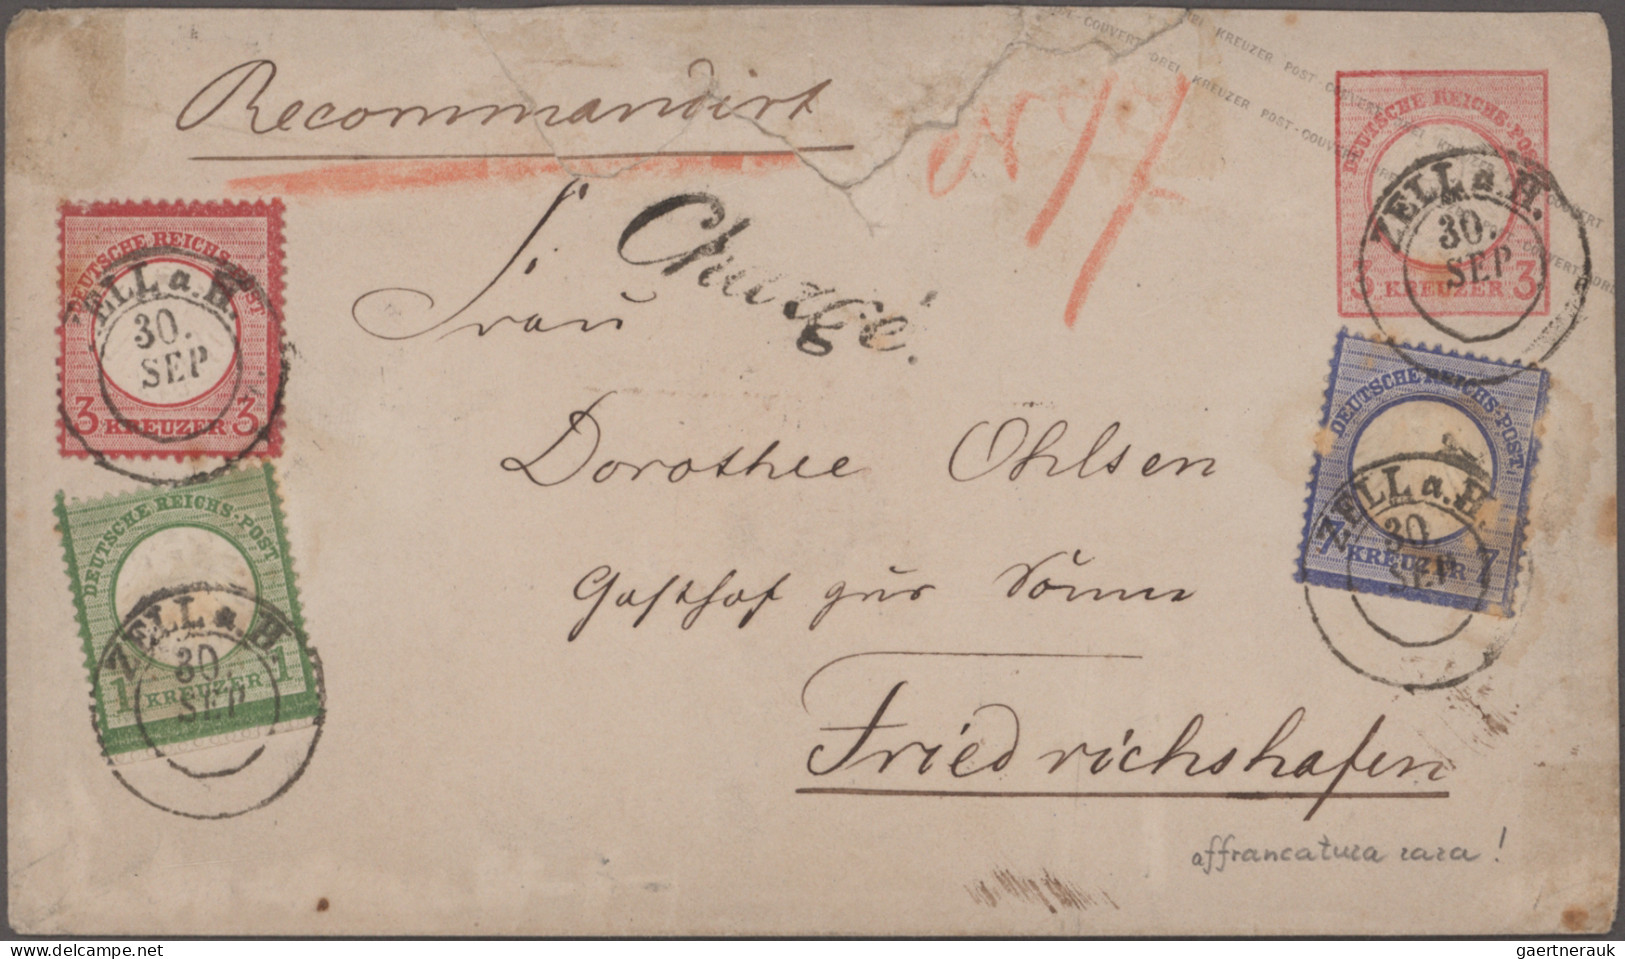 POST-COUVERT DREI KREUZER POST-COUVERT
ZWEI KREUZER POST COUVERT ZWEI KREUZER
Recommandirt
N 17
Chargé.
DEUTSCHE REICHS-POST
3 KREUZER 3
ZELL a. H.
30.
SEP
DEUTSCHE REICHS-POST
3 KREUZER 3
ZELL a. H.
30.
SEP
Frau
DEUTSCHE REICHS-POST
7 KREUZER 7
ZELL a. H.
30.
SEP
Dorothee Ohlsen
DEUTSCHE REICHS-POST
1 KREUZER 1
ZELL a. H.
30
SEP
Gasthof zur Sonne
Friedrichshafen
affrancatura rara!
www.delcampe.net
gaertnerauk